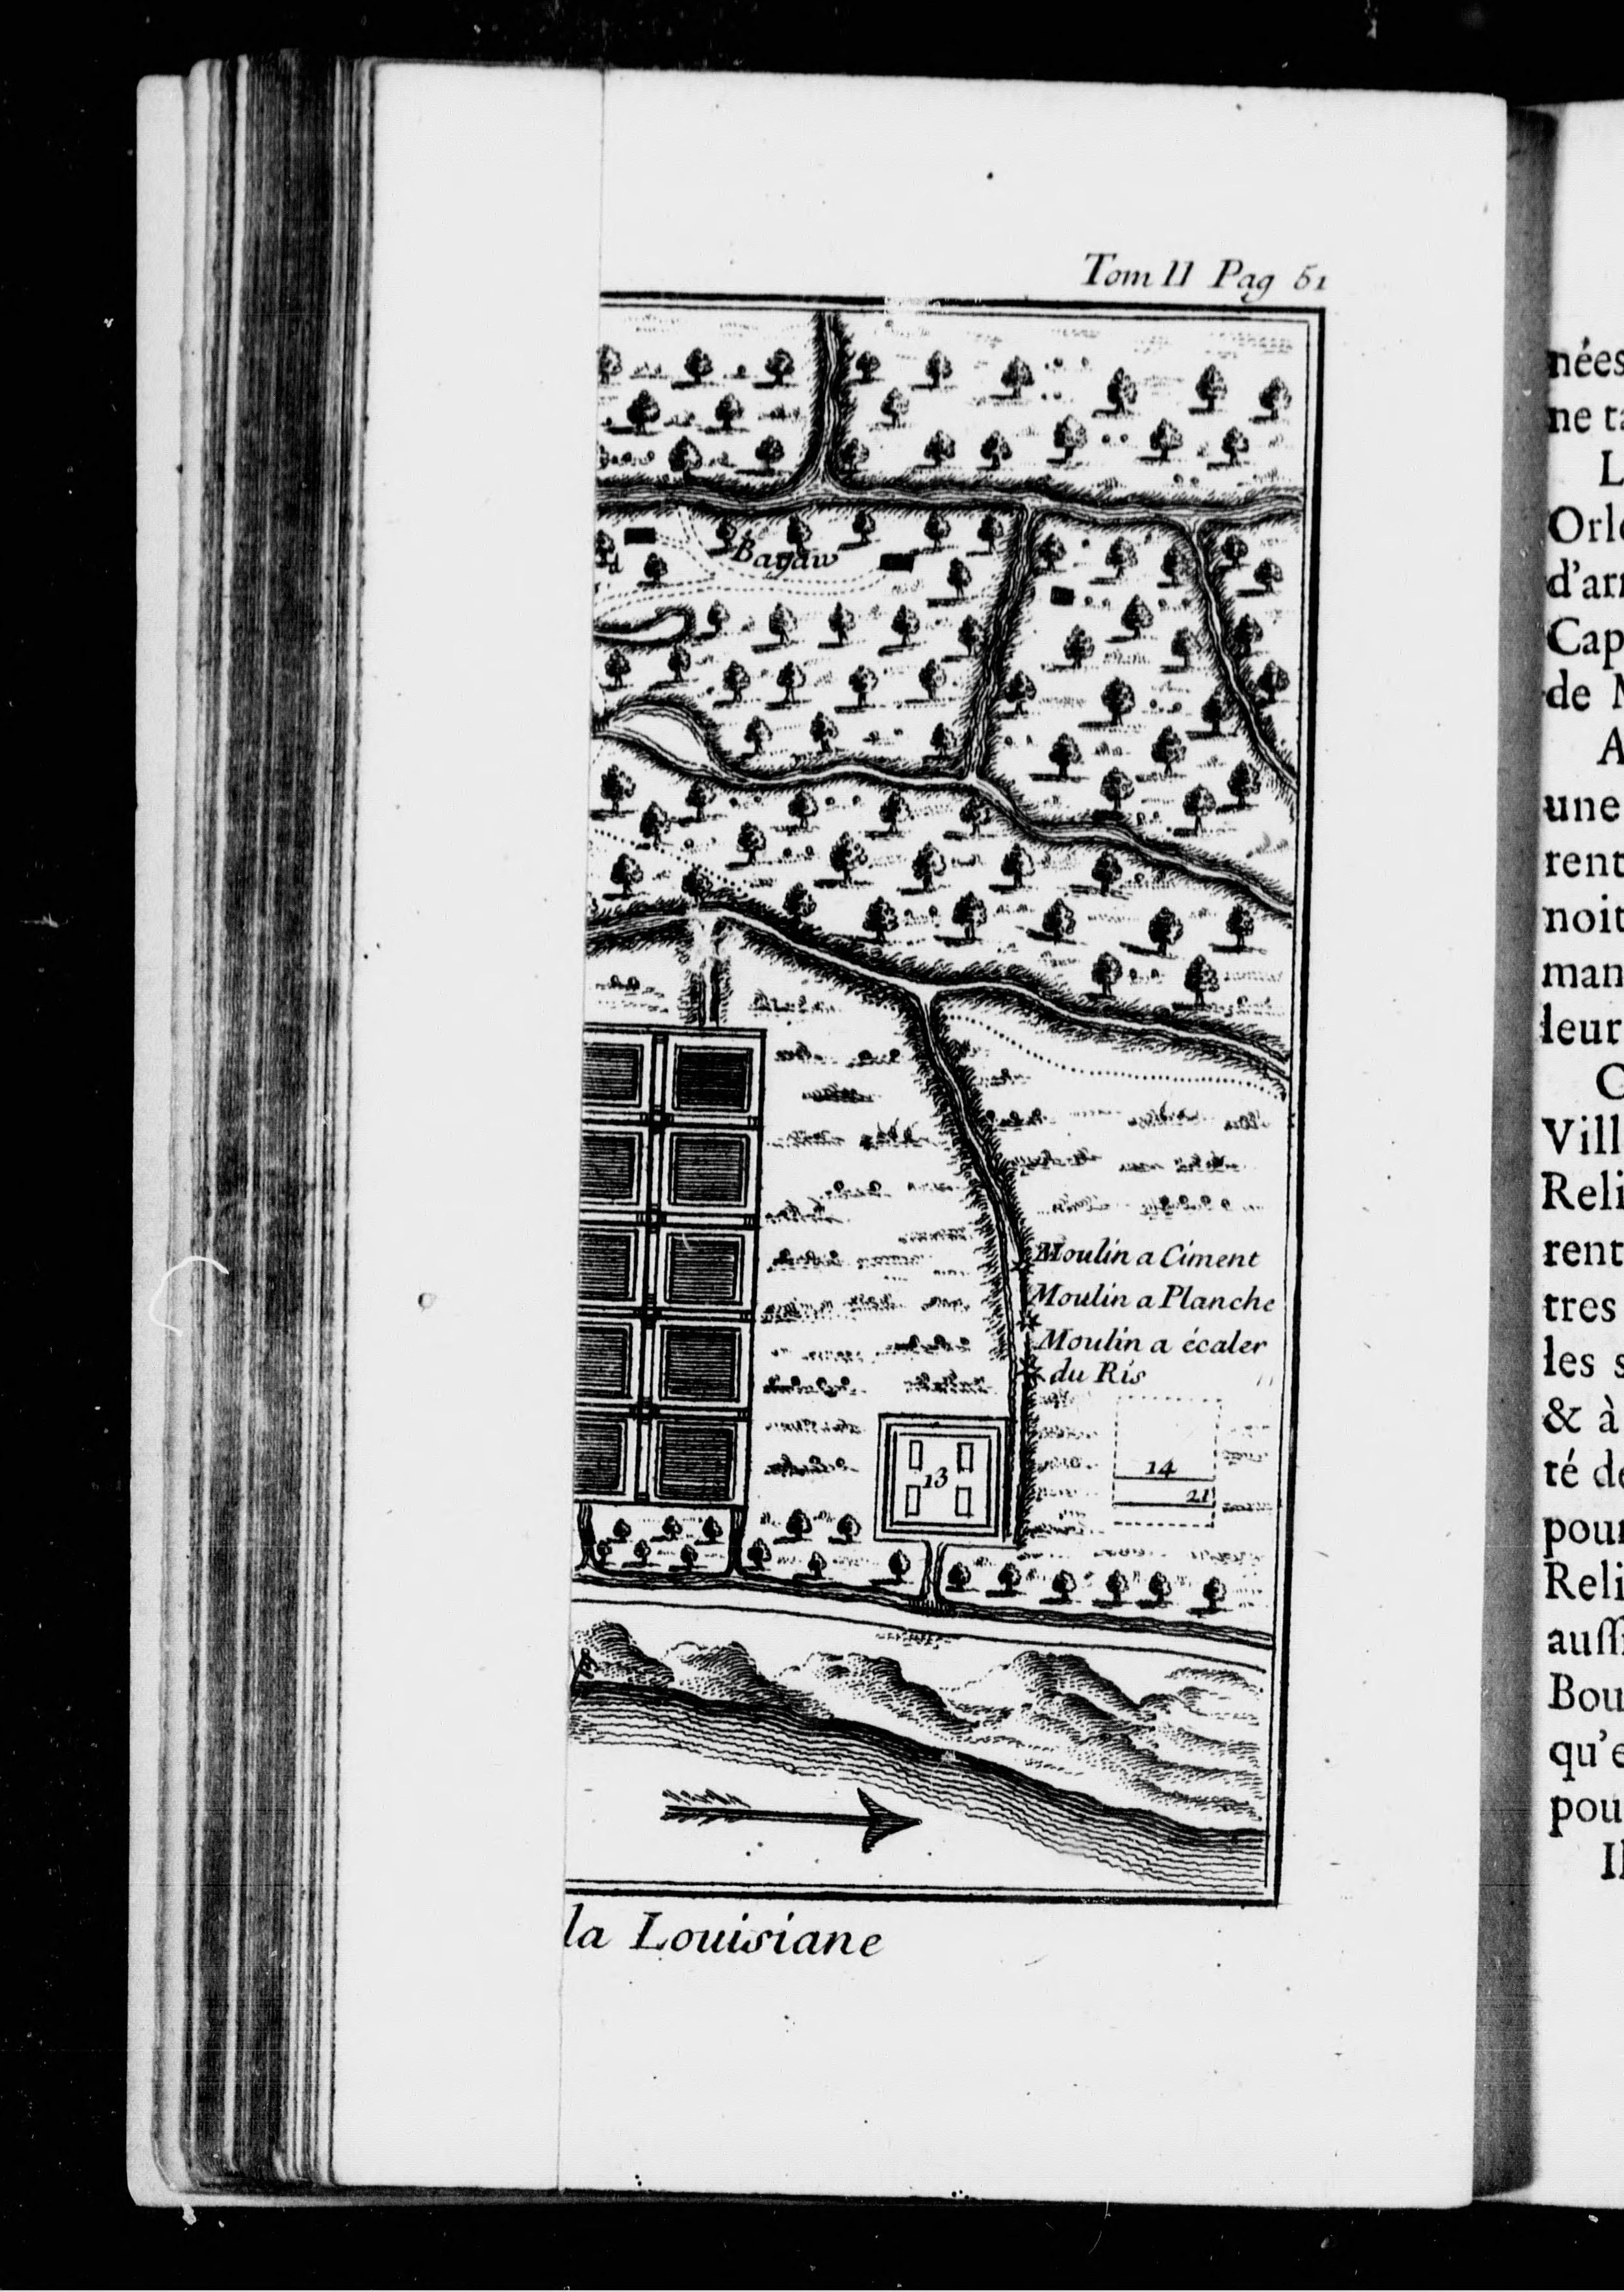 Tom II Pag 51
Bayaw
Moulin a Ciment
Moulin a Planche
Moulin a écaler
du Ris
13
14
21
la Louisiane
nées
ne ta
L
Orle
d'arr
Cap
de
A
une
rent
noit
man
leur
C
Vill
Reli
rent
tres
les s
& à
té de
pour
Reli
auss
Bou
qu'e
pou
Il